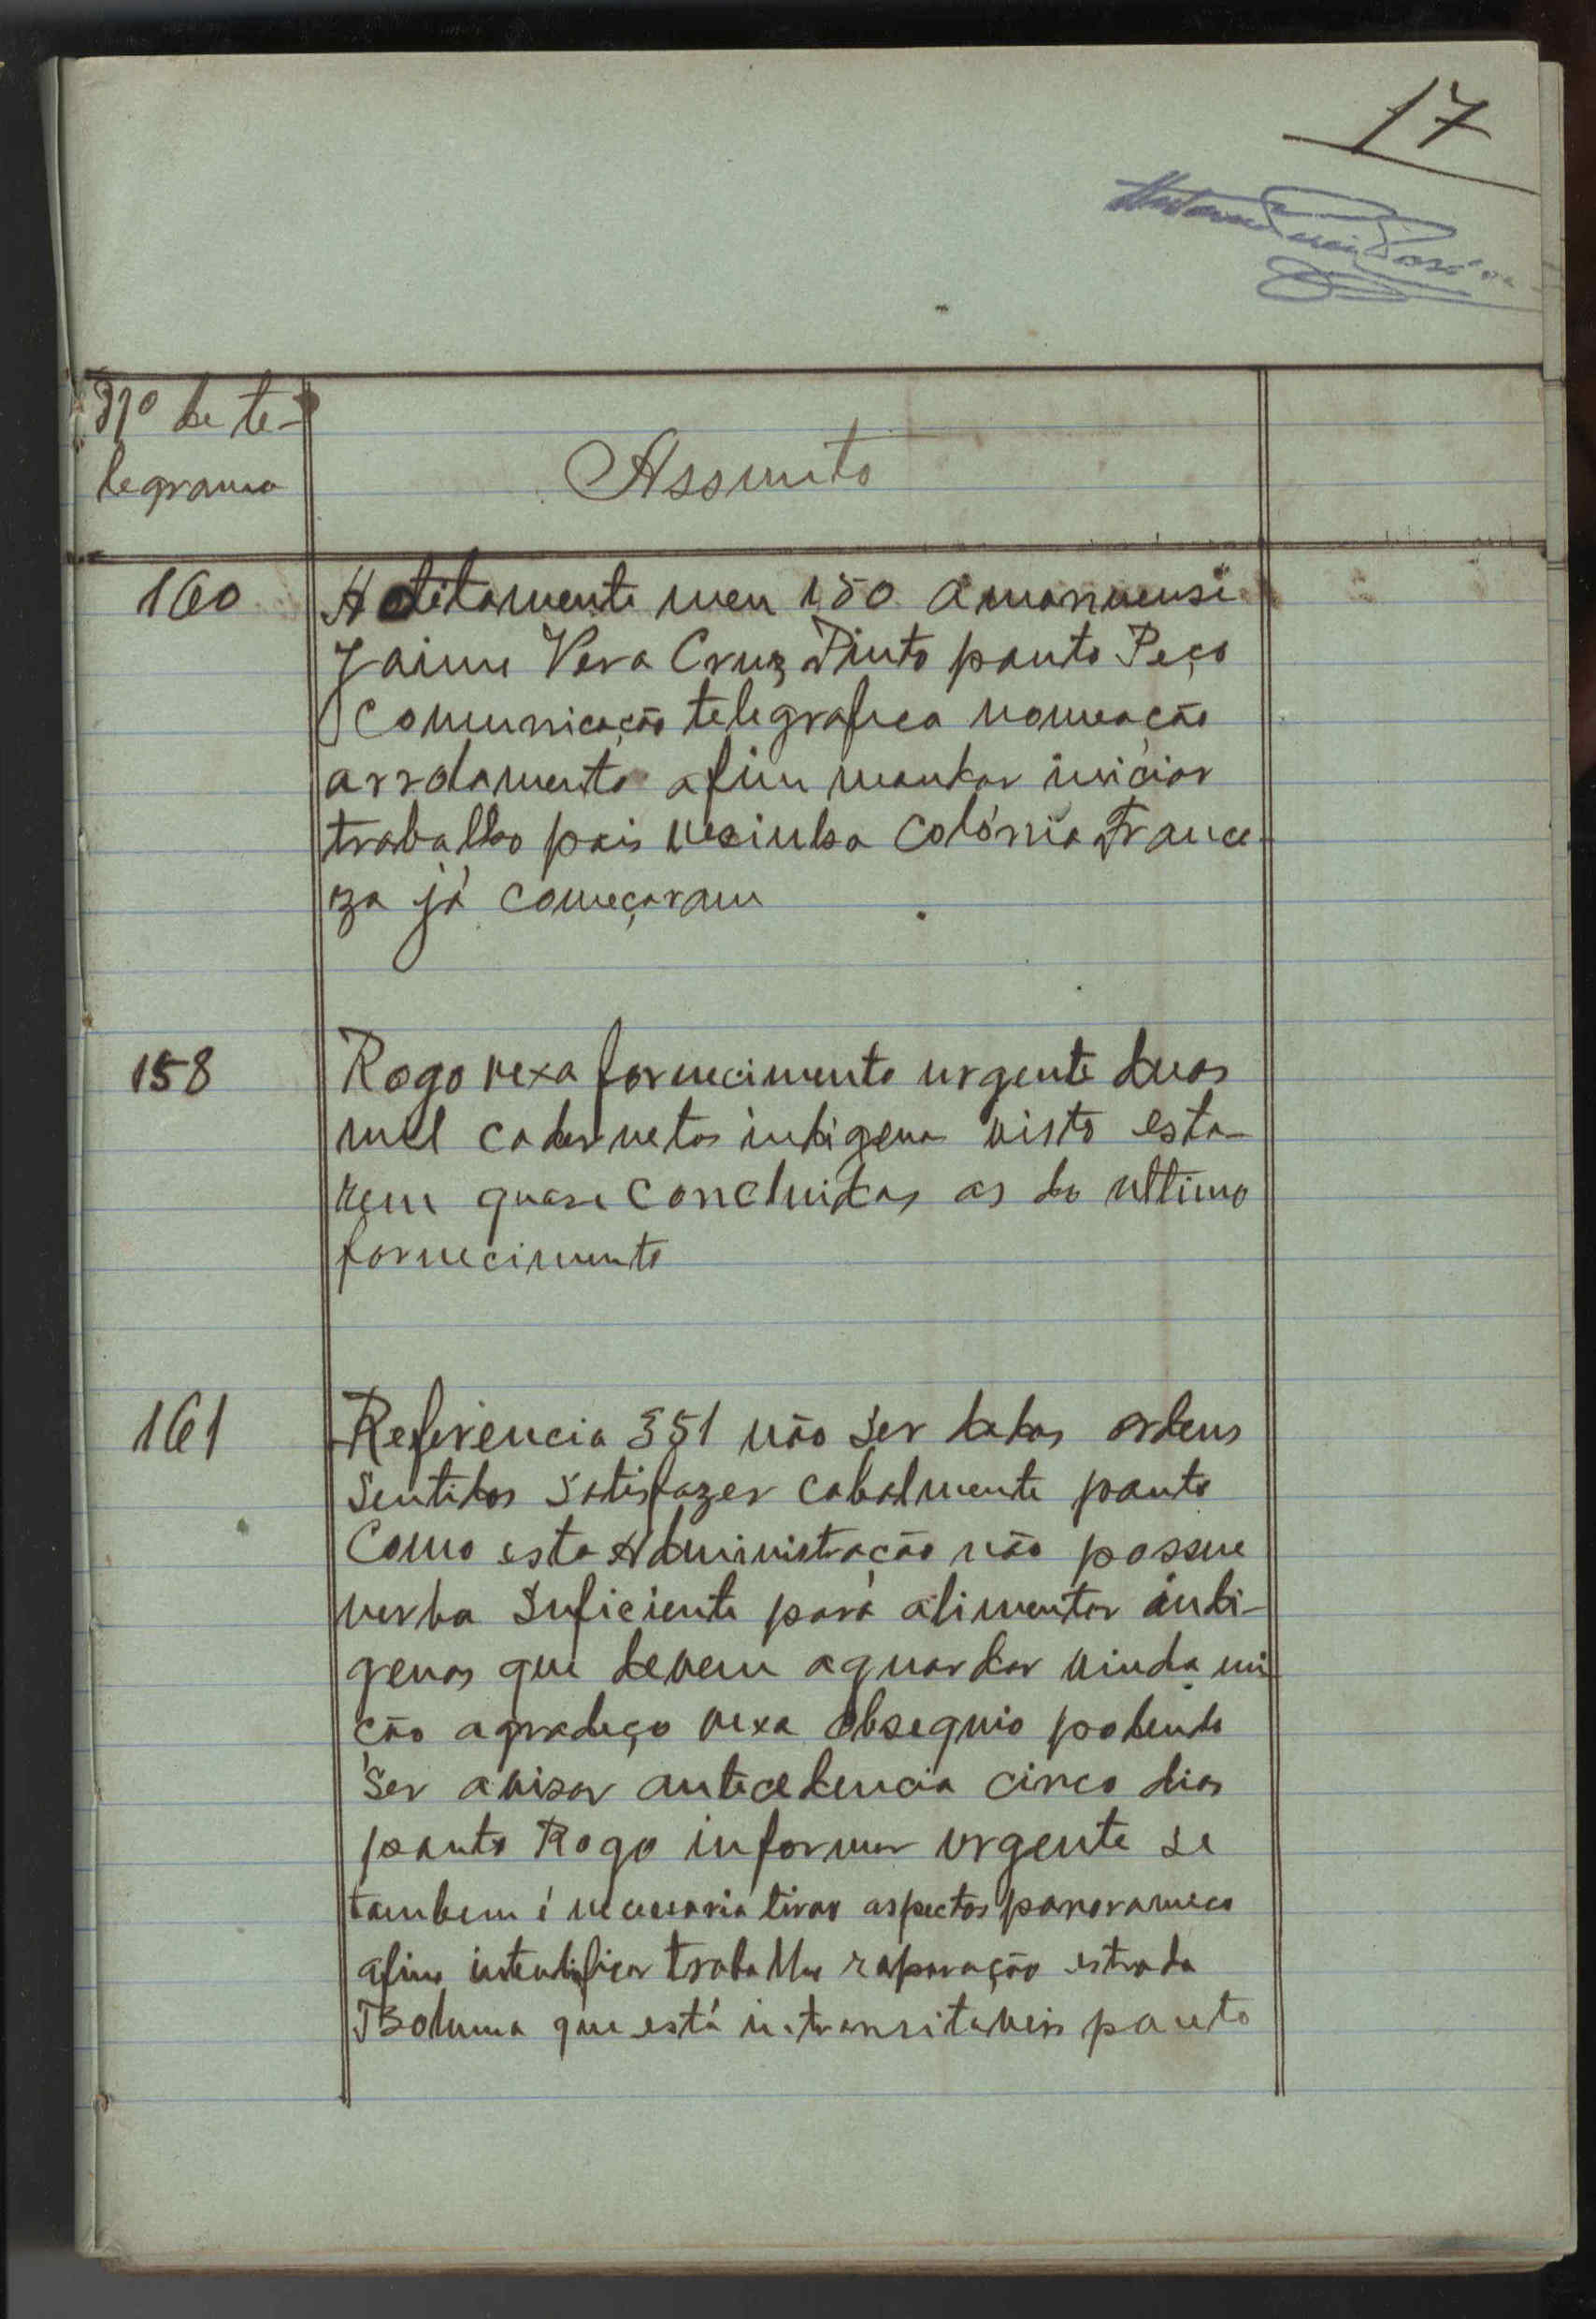 17
Nº de te-
legrama
Assunto
160
Aditamente meu 150 amanuense
Jaime Vera Cruz Pinto ponto Peço
comunicação telegrafica nomeação
arrolamento afim mandar iniciar
trabalho pois vesinha Colónia France-
za já começaram
158
Rogo vexa fornecimento urgente duas
mil cadernetas indigena visto esta-
rem quase concluidas as do ultimo
fornecimento
161
Referencia 351 não ser dadas ordens
sentidos satisfazer cabalmente ponto
Como esta Administração não possue
verba suficiente pará alimentar indi-
genas que devem aguardar vinda mi
ção agradeço vexa obsequio podendo
ser avisar antecedencia cinco dias
ponto Rogo informar urgente se
tambem é necessaria tirar aspectos panorameco
afim intendificar trabalhos reparação estrada
Boluma que está intransitaveis ponto